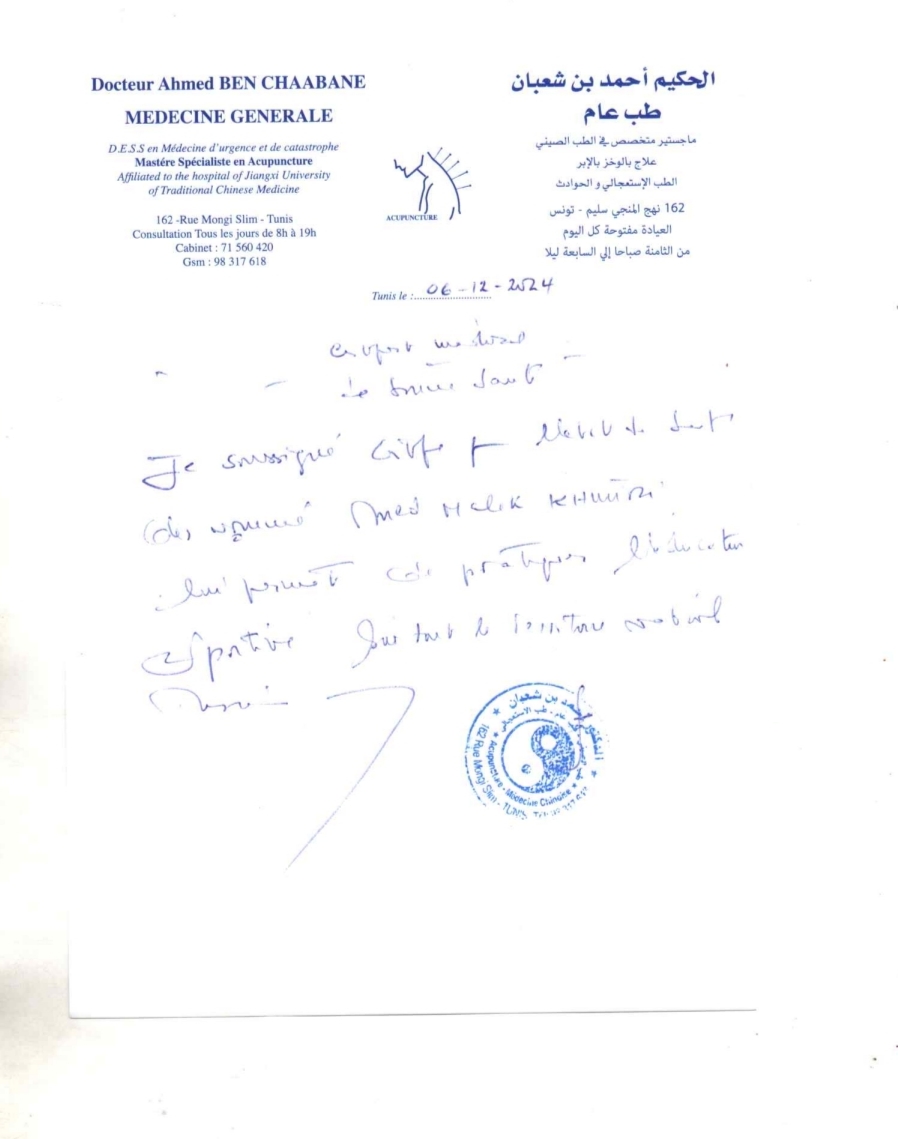 Docteur Ahmed BEN CHAABANE
MEDECINE GENERALE
D.E.S.S en Médecine d'urgence et de catastrophe
Mastére Spécialiste en Acupuncture
Affiliated to the hospital of Jiangxi University
of Traditional Chinese Medicine
162 -Rue Mongi Slim - Tunis
Consultation Tous les jours de 8h à 19h
Cabinet : 71 560 420
Gsm : 98 317 618
ACUPUNCTURE
الحكيم أحمد بن شعبان
طب عام
ماجستير متخصص في الطب الصيني
علاج بالوخز بالإبر
الطب الإستعجالي و الحوادث
162 نهج المنجي سليم - تونس
العيادة مفتوحة كل اليوم
من الثامنة صباحا إلي السابعة ليلا
Tunis le : 06-12-2024
médical
de bonne santé
Je soussigné
nommé Med Malek
lui permet de pratiquer
sportive sur tout le territoire national
الدكتور أحمد بن شعبان
162 Rue Mongi Slim - TUNIS
Acupuncture - Médecine Chinoise